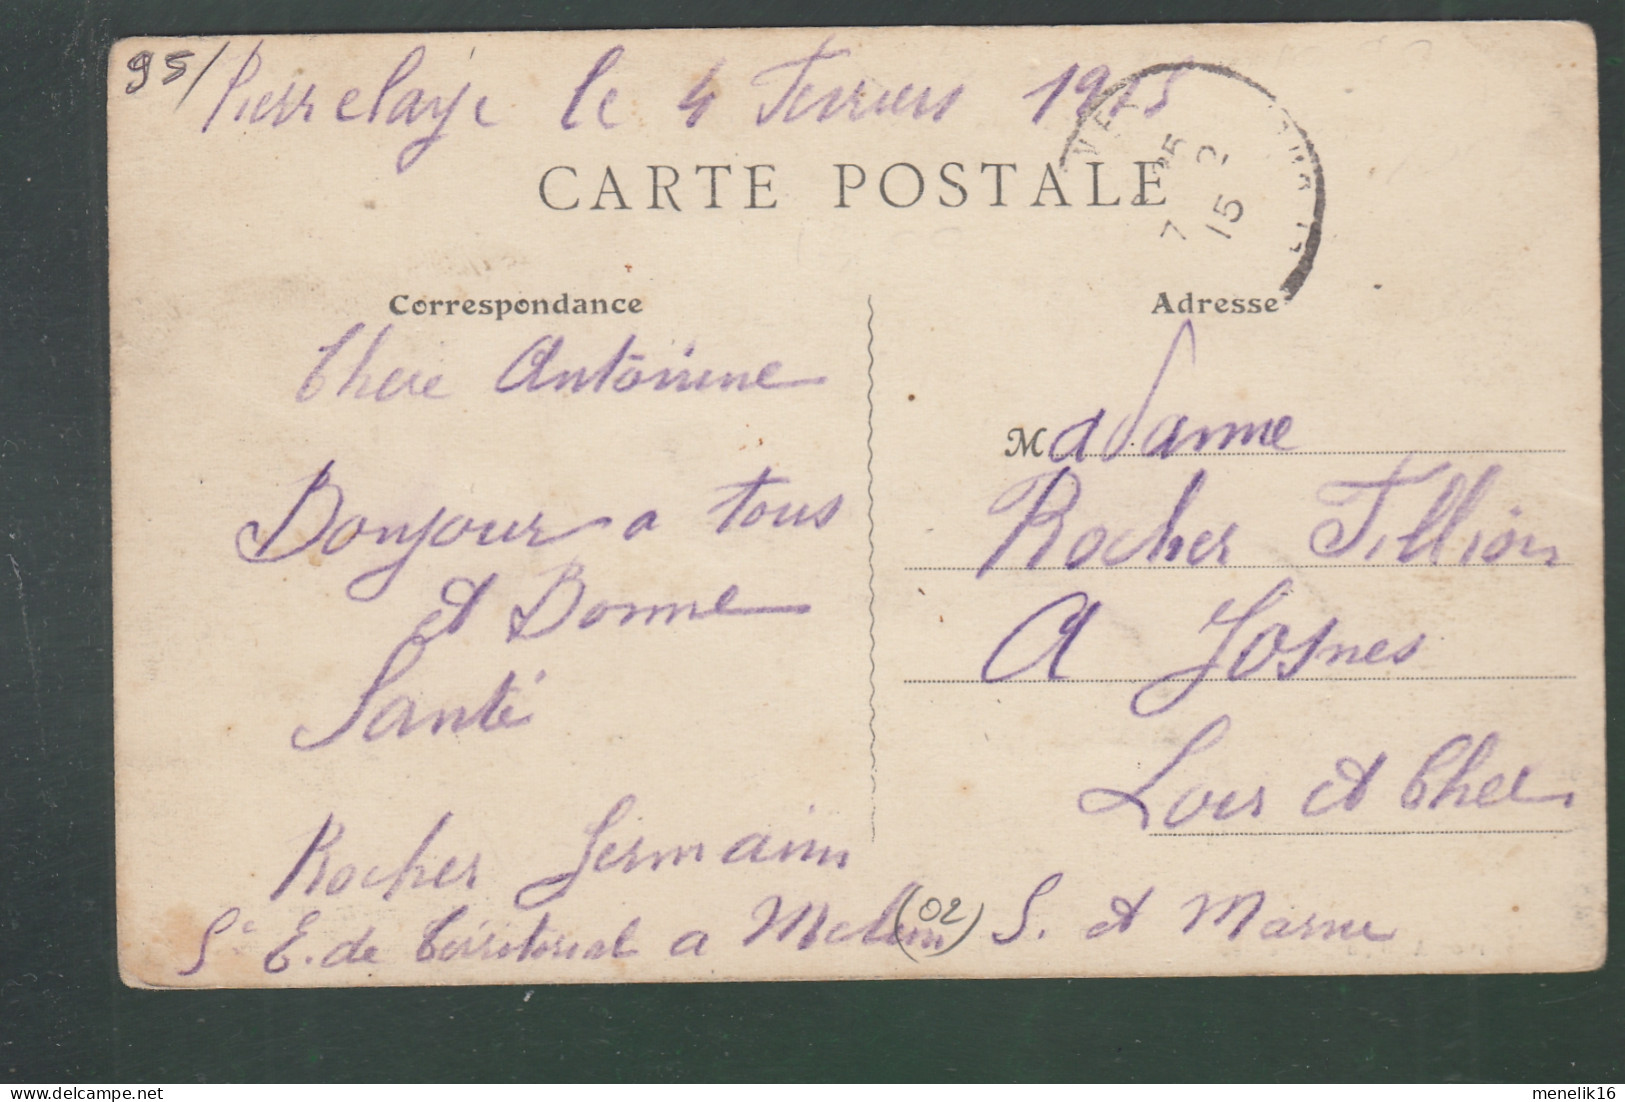 95/ Pierrelaye le 4 Ferriers 1915
CARTE POSTALE
7 25
15 2
Correspondance
Adresse
Chere Antonine
Bonjour a tous
et Bonne
Santé
Rocher Germain
S. E. de Territorial a Melun (02) S. et Marne
Madame
Rocher Tillion
A Josnes
Loir et Cher
menelik16